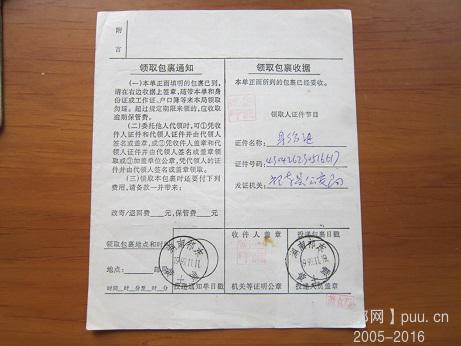 附
言
领取包裹通知
(一)本单正面填明的包裹已到,
请在右边收据上签章,随带本单和身
份证或工作证、户口簿等来本局领取
勿延。超过规定期限来领的,应收取
逾期保管费。
(二)委托他人代领时,可①凭收
件人证件和代领人证件并由代领人
签名或盖章,或②凭收件人盖章和代
领人证件并由代领人签名或盖章领
取或③加盖单位公章,凭代领人的证
件并由代领人签名或盖章领取。
(三)领取本包裹时还要付下列
费用,请备款一并带来:
改寄/退回费 元,保管费 元。
领取包裹地点和时间
地点:
时间 时 分至 时 分
投递通知单日戳
领取包裹收据
本单正面所列的包裹已经妥收。
领取人证件节目
证件名称: 身份证
证件号码:
发证机关:
收件人盖章
机关等证明公章
投递包裹日戳
投递人员盖章
湖南祁东
湖南祁东
网】puu.cn
2005-2016